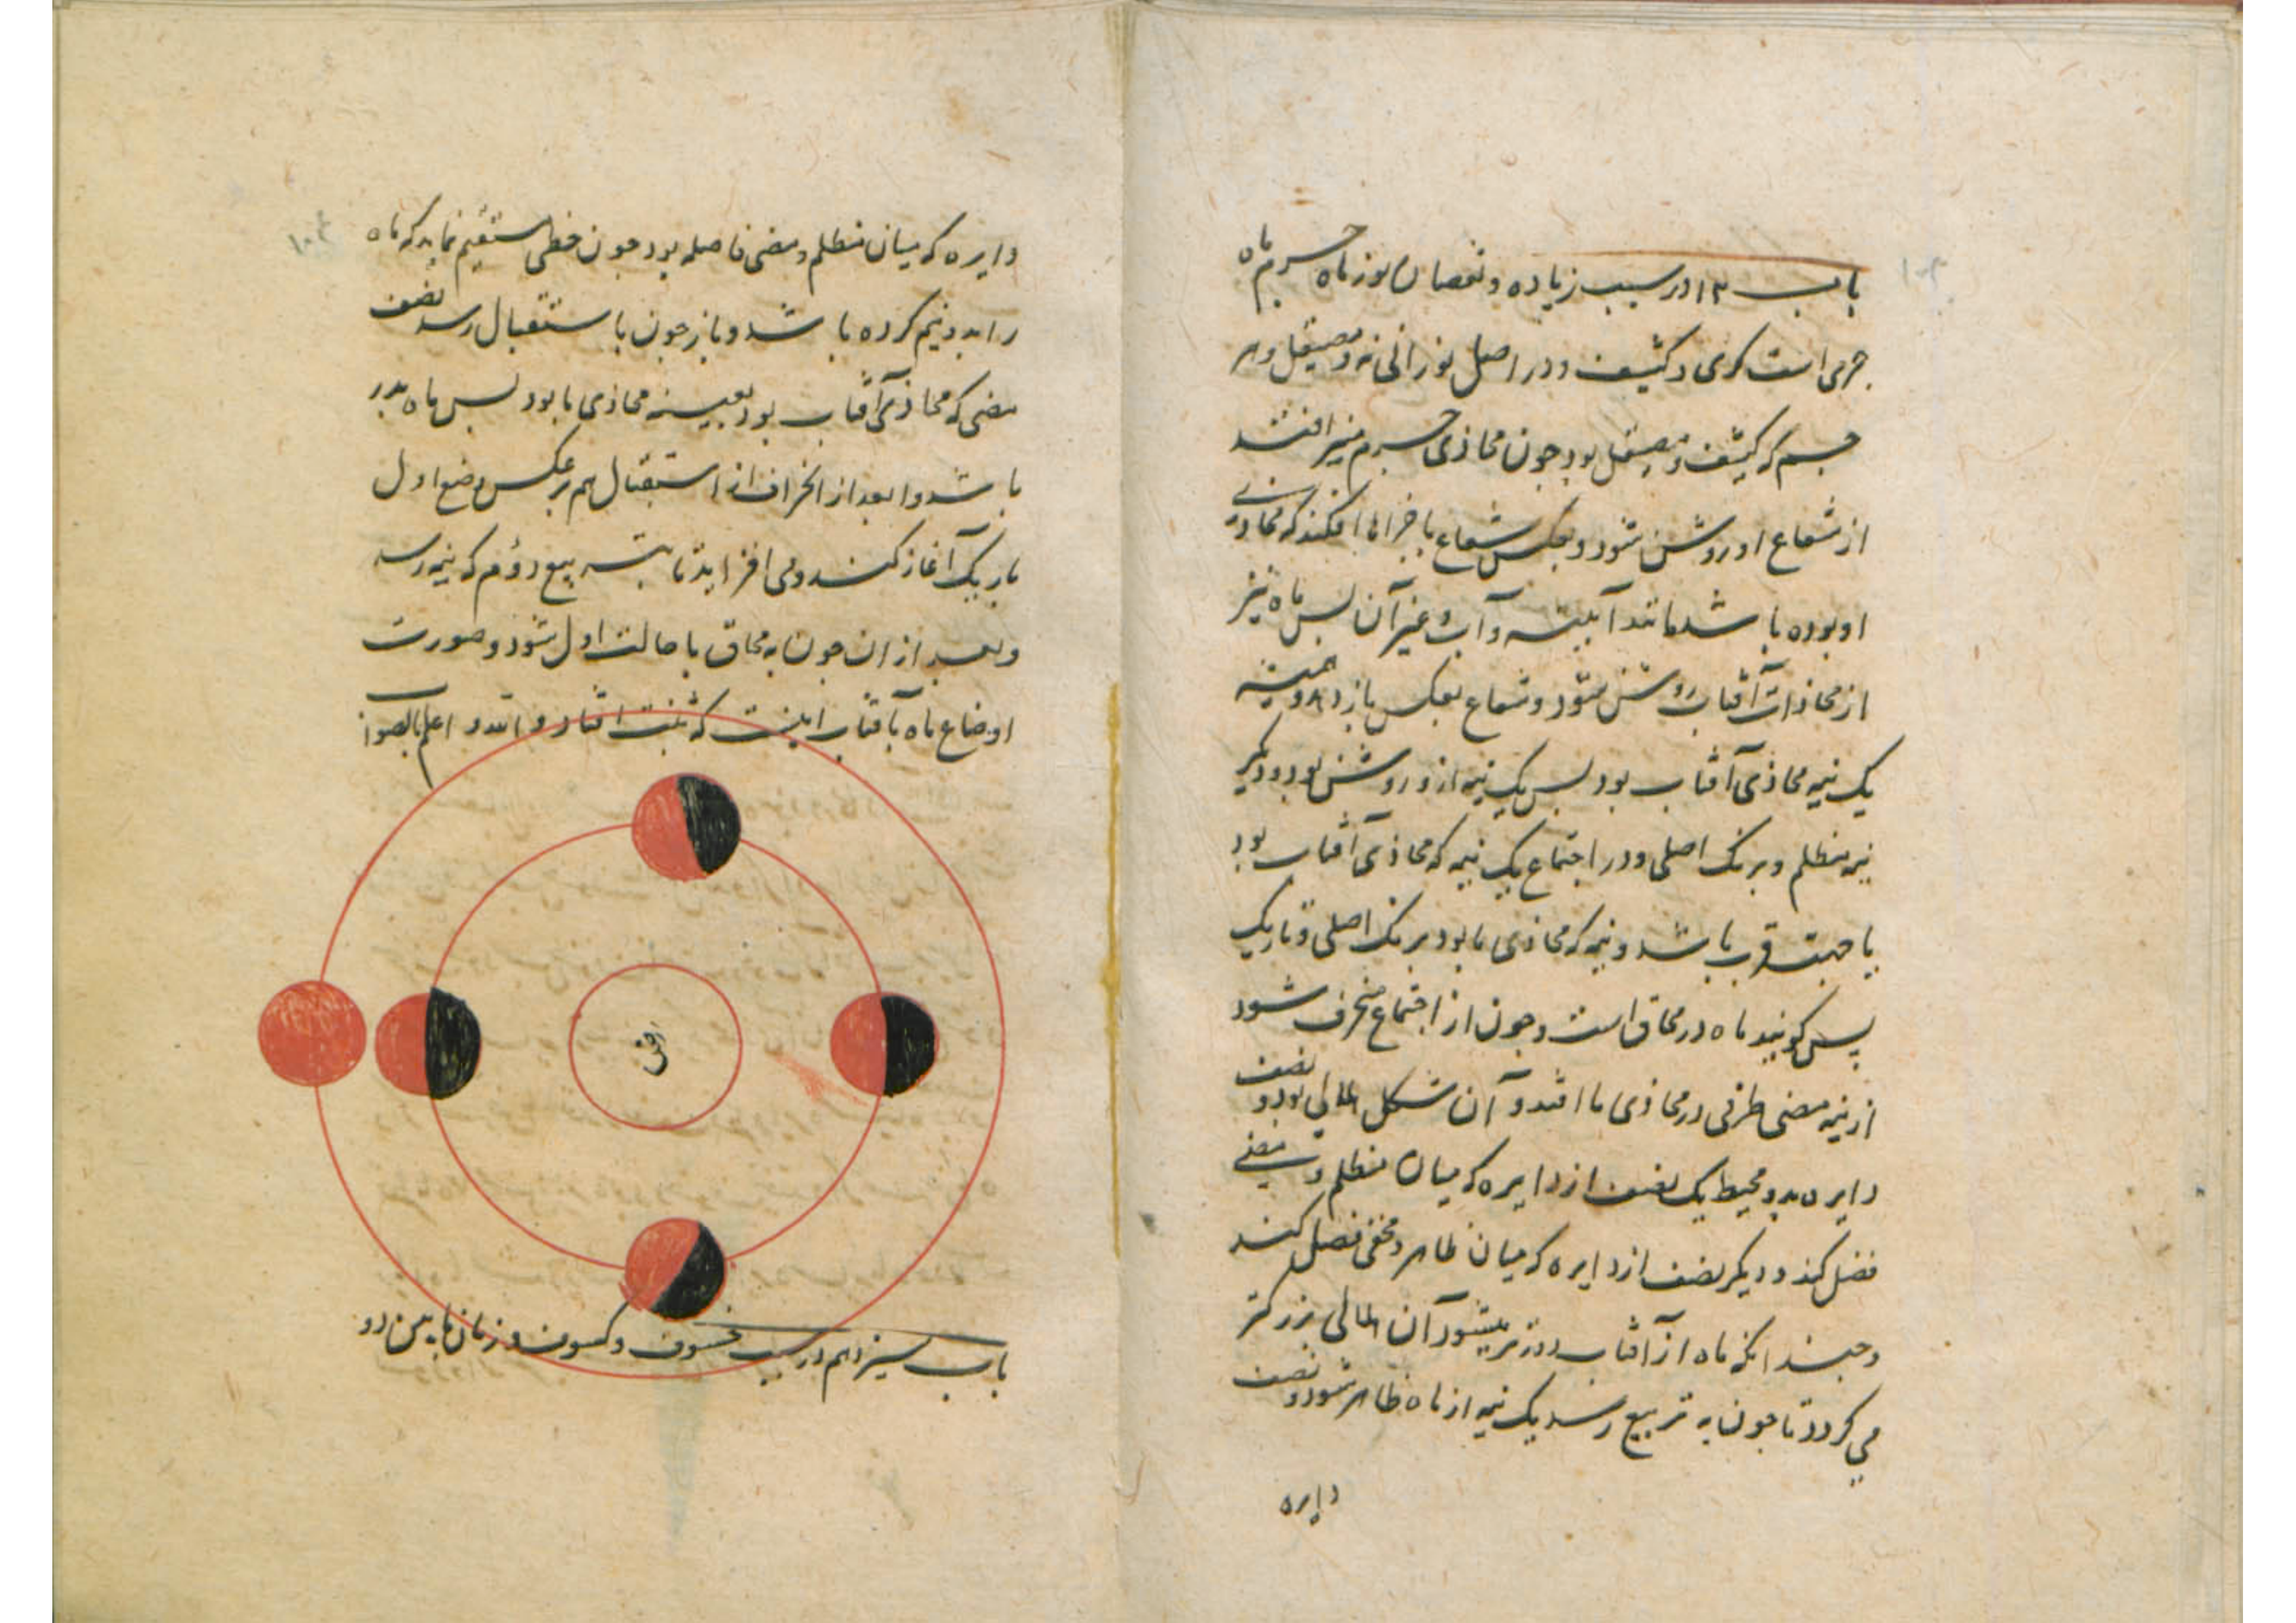 باب ۱۲ در سبب زیاده و نقصان نور ماه جرم ماه
جرمی است کری و کثیف و در اصل نورانی نه و صیقل و هر
جسم که کثیف و صیقل بود چون محاذی جسم منیر افتد
از شعاع او روشن شود و بعکس شعاع با جزاها افکند که محاذی
او بوده باشد مانند آیینه و آب و غیر آن پس ماه نیز
از محاذات آفتاب روشن شود و شعاع بعکس باز دهد و همیشه
یک نیمه محاذی آفتاب بود پس یک نیمه از و روشن بود و دیگر
نیمه مظلم و برنک اصلی و در اجتماع یک نیمه که محاذی آفتاب بود
با جهت قرب باشد و نیمه که محاذی ما بود برنک اصلی و تاریک
پس کویند ماه در محاق است و چون از اجتماع منحرف شود
از نیمه مضی طرفی در محاذی ما افتد و آن شکل هلالی بود و نصف
دایره بدو محیط یک نصف از دایره که میان مظلم و مضی
فصل کند و دیگر نصف از دایره که میان ظاهر و مخفی فصل کند
و چندانکه ماه از آفتاب دورتر میشود آن هلالی بزرکتر
می کردد تا چون به تربیع رسد یک نیمه از ماه ظاهر شود و نصف
دایره
دایره که میان مظلم و مضی فاصله بود چون خطی مستقیم نماید که ماه
را بدو نیم کرده باشد و باز چون با ستقبال رسد نصف
مضی که محاذی آفتاب بود بعینه محاذی ما بود پس ماه بدر
باشد و بعد از انحراف از استقبال هم بر عکس وضع اول
تاریک آغاز کند و می افزاید تا بتربیع دؤم که نیمه رسد
و بعد از ان چون به محاق با حالت اول شود و صورت
اوضاع ماه بآفتاب اینست که ثبت افتاد و الله اعلم بالصواب
ارض
باب سیزدهم در سبب خسوف و کسوف و زمان مابین دو